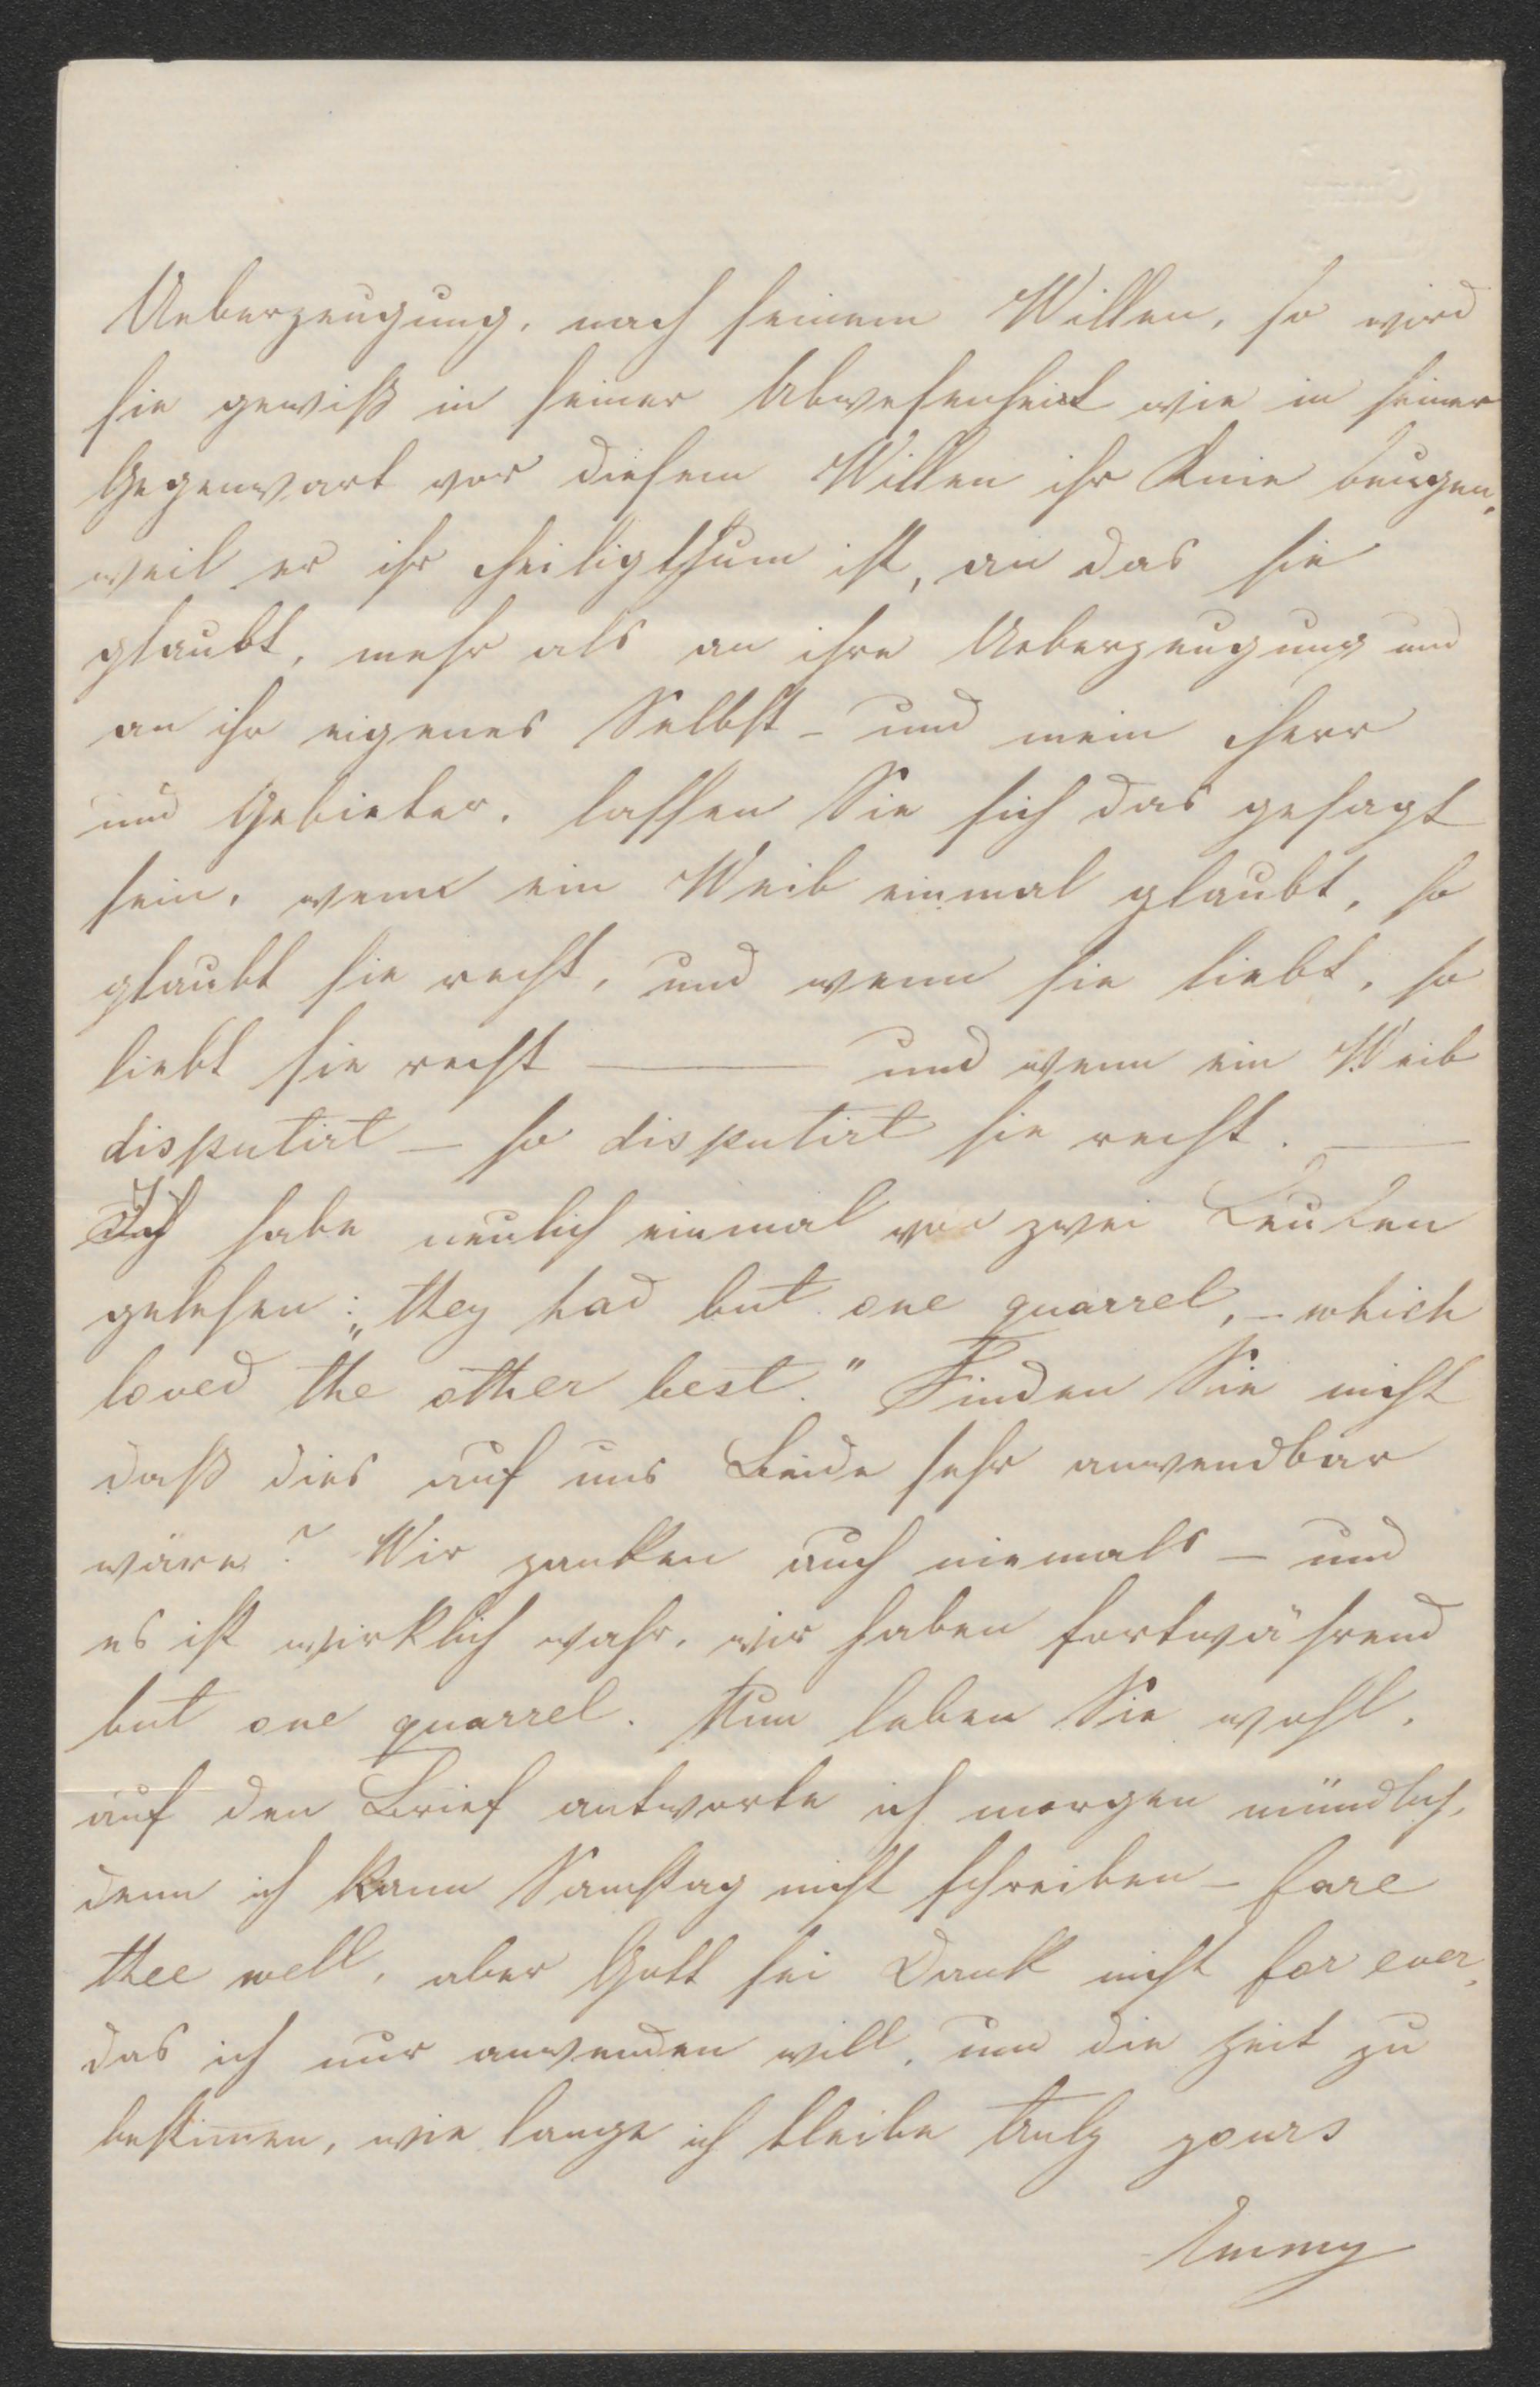 Ueberzeugung, nach seinem Willen, so wird
sie gewiß in seiner Abwesenheit wie in seiner
Gegenwart vor diesem Willen ihr Knie beugen,
weil er ihr Heiligthum ist, an das sie
glaubt, mehr als an ihre Ueberzeugung und
an ihr eigenes Selbst – und mein Herr
und Gebieter, lassen Sie sich das gesagt
sein, wenn ein Weib einmal glaubt, so
glaubt sie recht, und wenn sie liebt, so
liebt sie recht — und wenn ein Weib
disputirt – so disputirt sie recht. —
Ich habe neulich einmal von zwei Leuten
gelesen: „they had but one quarrel, – which
loved the other best." Finden Sie nicht
daß dies auf uns Beide sehr anwendbar
wäre? Wir zanken auch niemals – und
es ist wirklich wahr, wir haben fortwährend
but one quarrel. Nun leben Sie wohl,
auf den Brief antworte ich morgen mündlich,
denn ich kann Samstag nicht schreiben – fare
thee well, aber Gott sei Dank nicht for ever,
das ich nur anwenden will, um die Zeit zu
bestimen, wie lange ich bleibe truly yours
Emmy